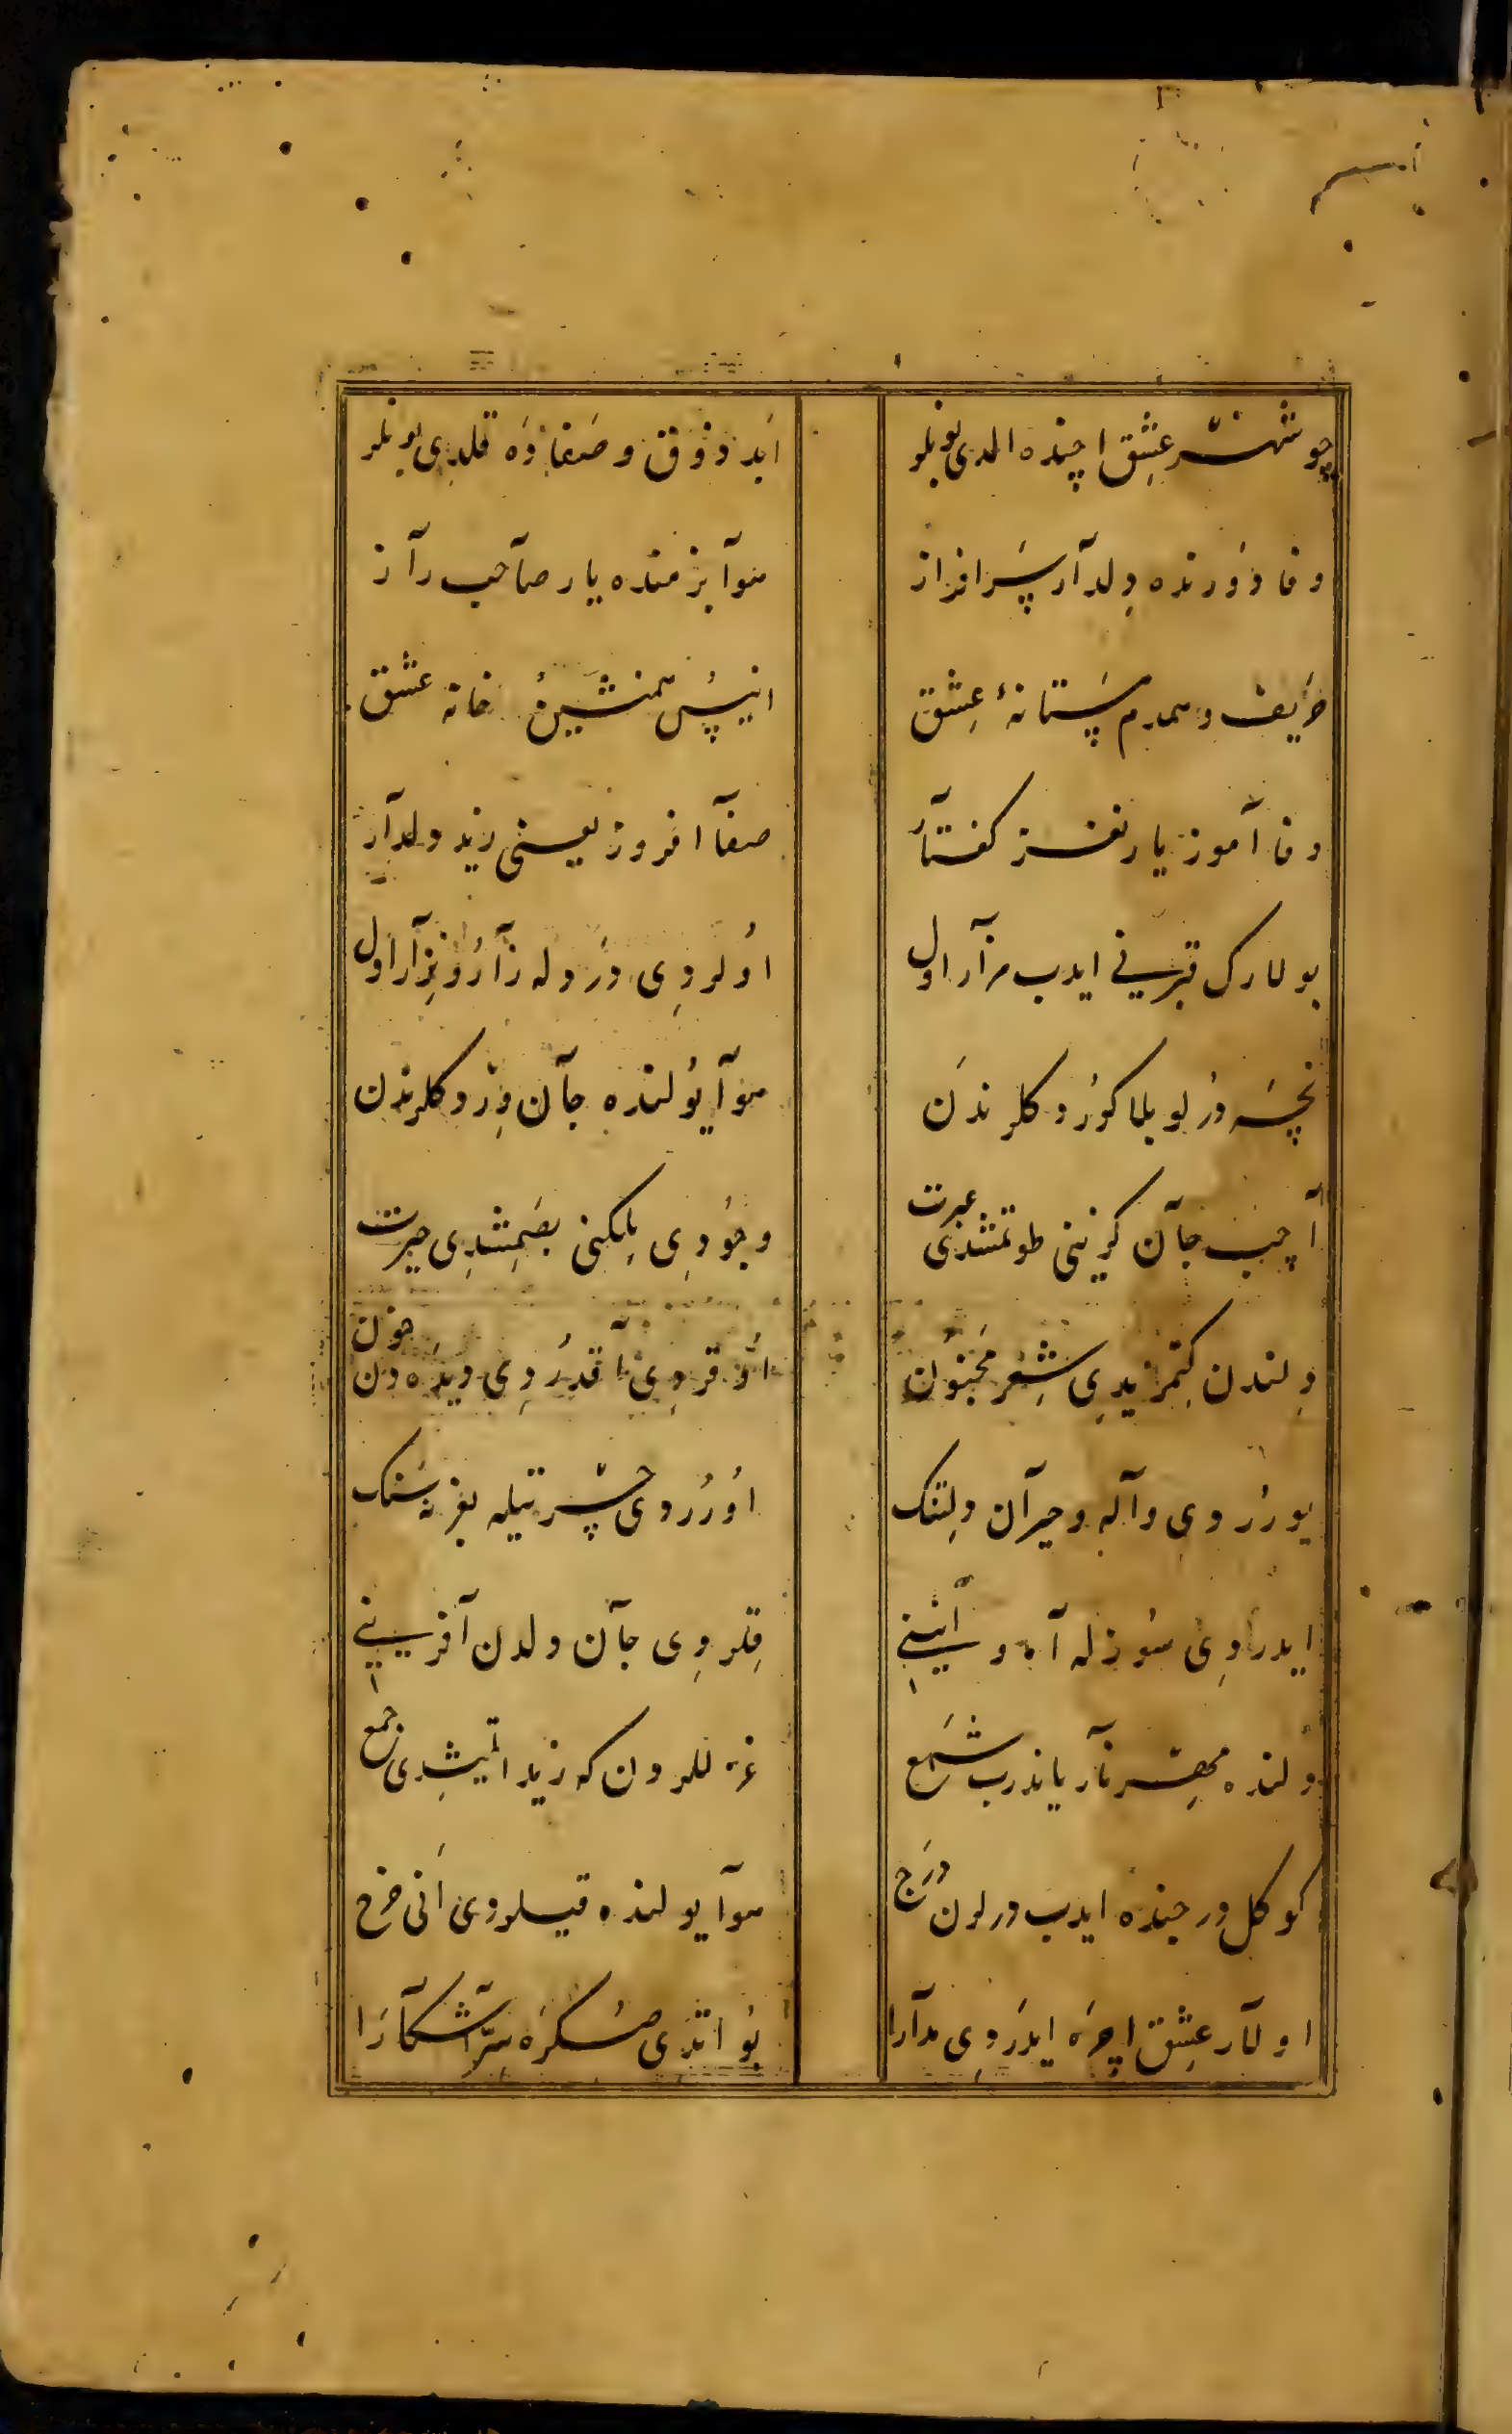 چو شهر عشق اچنده الدی بو بلر
اید ذوق و صفا ده قلدی بو بلر
وفا دورنده دلدار سرافراز
هوا بزمنده یار صاحب راز
حریف و همدم مستانۀ عشق
انیس همنشین خانه عشق
وفا آموز یار نغز کفتار
صفا افروز یعنی زید دلدار
بولارک قبرنی ایدب مزار اول
اولردی درد له زار و نزار اول
نجه درلو بلا کوردکلرندن
هوا یولنده جان ویردکلرندن
آچب جان کوزینی طوتمشدی عبرت
وجودی ملکنی بصمشدی حیرت
دلندن کتمزیدی شعر مجنون
اوقردی آقدردی دیده دن خون
یوررودی واله و حیران دلتنک
اوررودی حسرتیله بغرنه سنک
ایدردی سوزله آه و انینی
قلردی جان ودلدن آفرینی
دلنده مهر نار یاندرب شمع
غزللردن که زید اتمیشدی جمع
کوکل درجنده ایدب درلرن درج
هوا یولنده قیلردی انی خرج
اولار عشق اچره ایدردی مدارا
بو اتدی صکره سر آشکارا